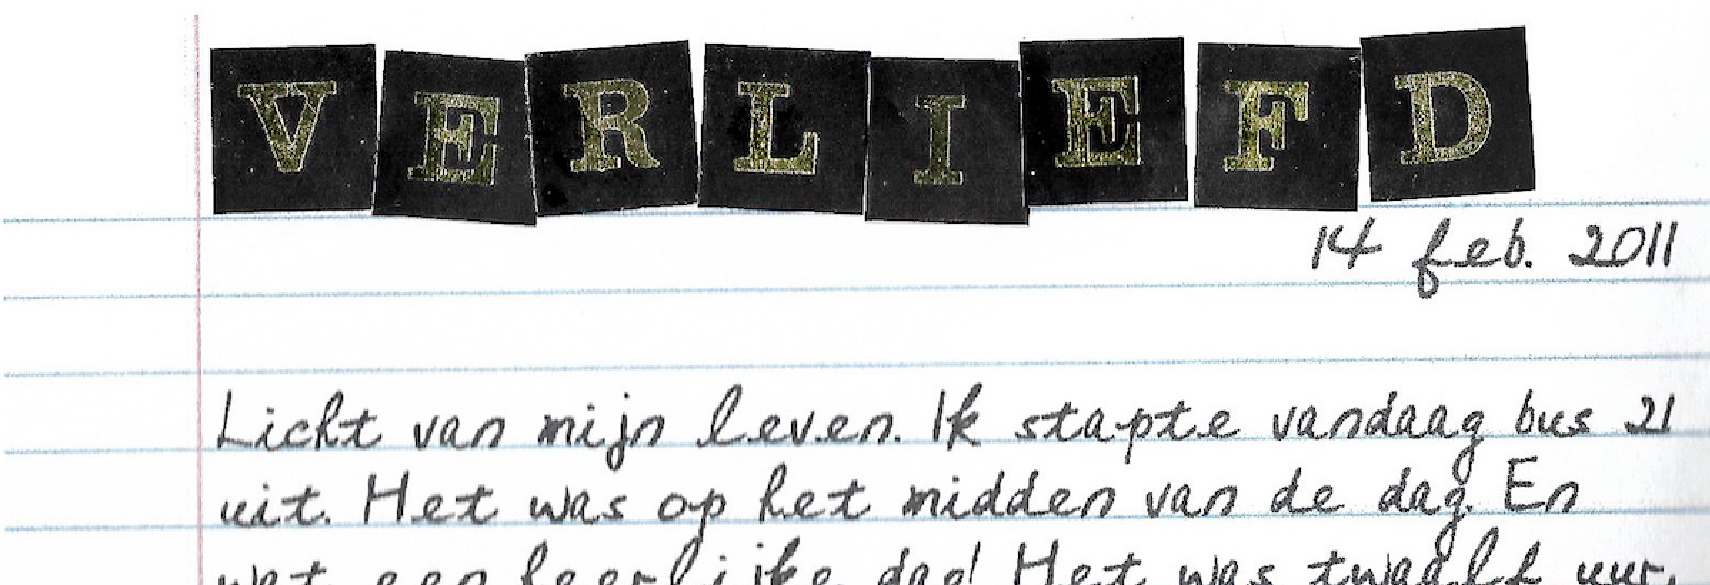 VERLIEFD
14 feb. 2011
Licht van mijn leven. Ik stapte vandaag bus 21
uit. Het was op het midden van de dag. En
wat een heerlijke dag! Het was twaalf uur.